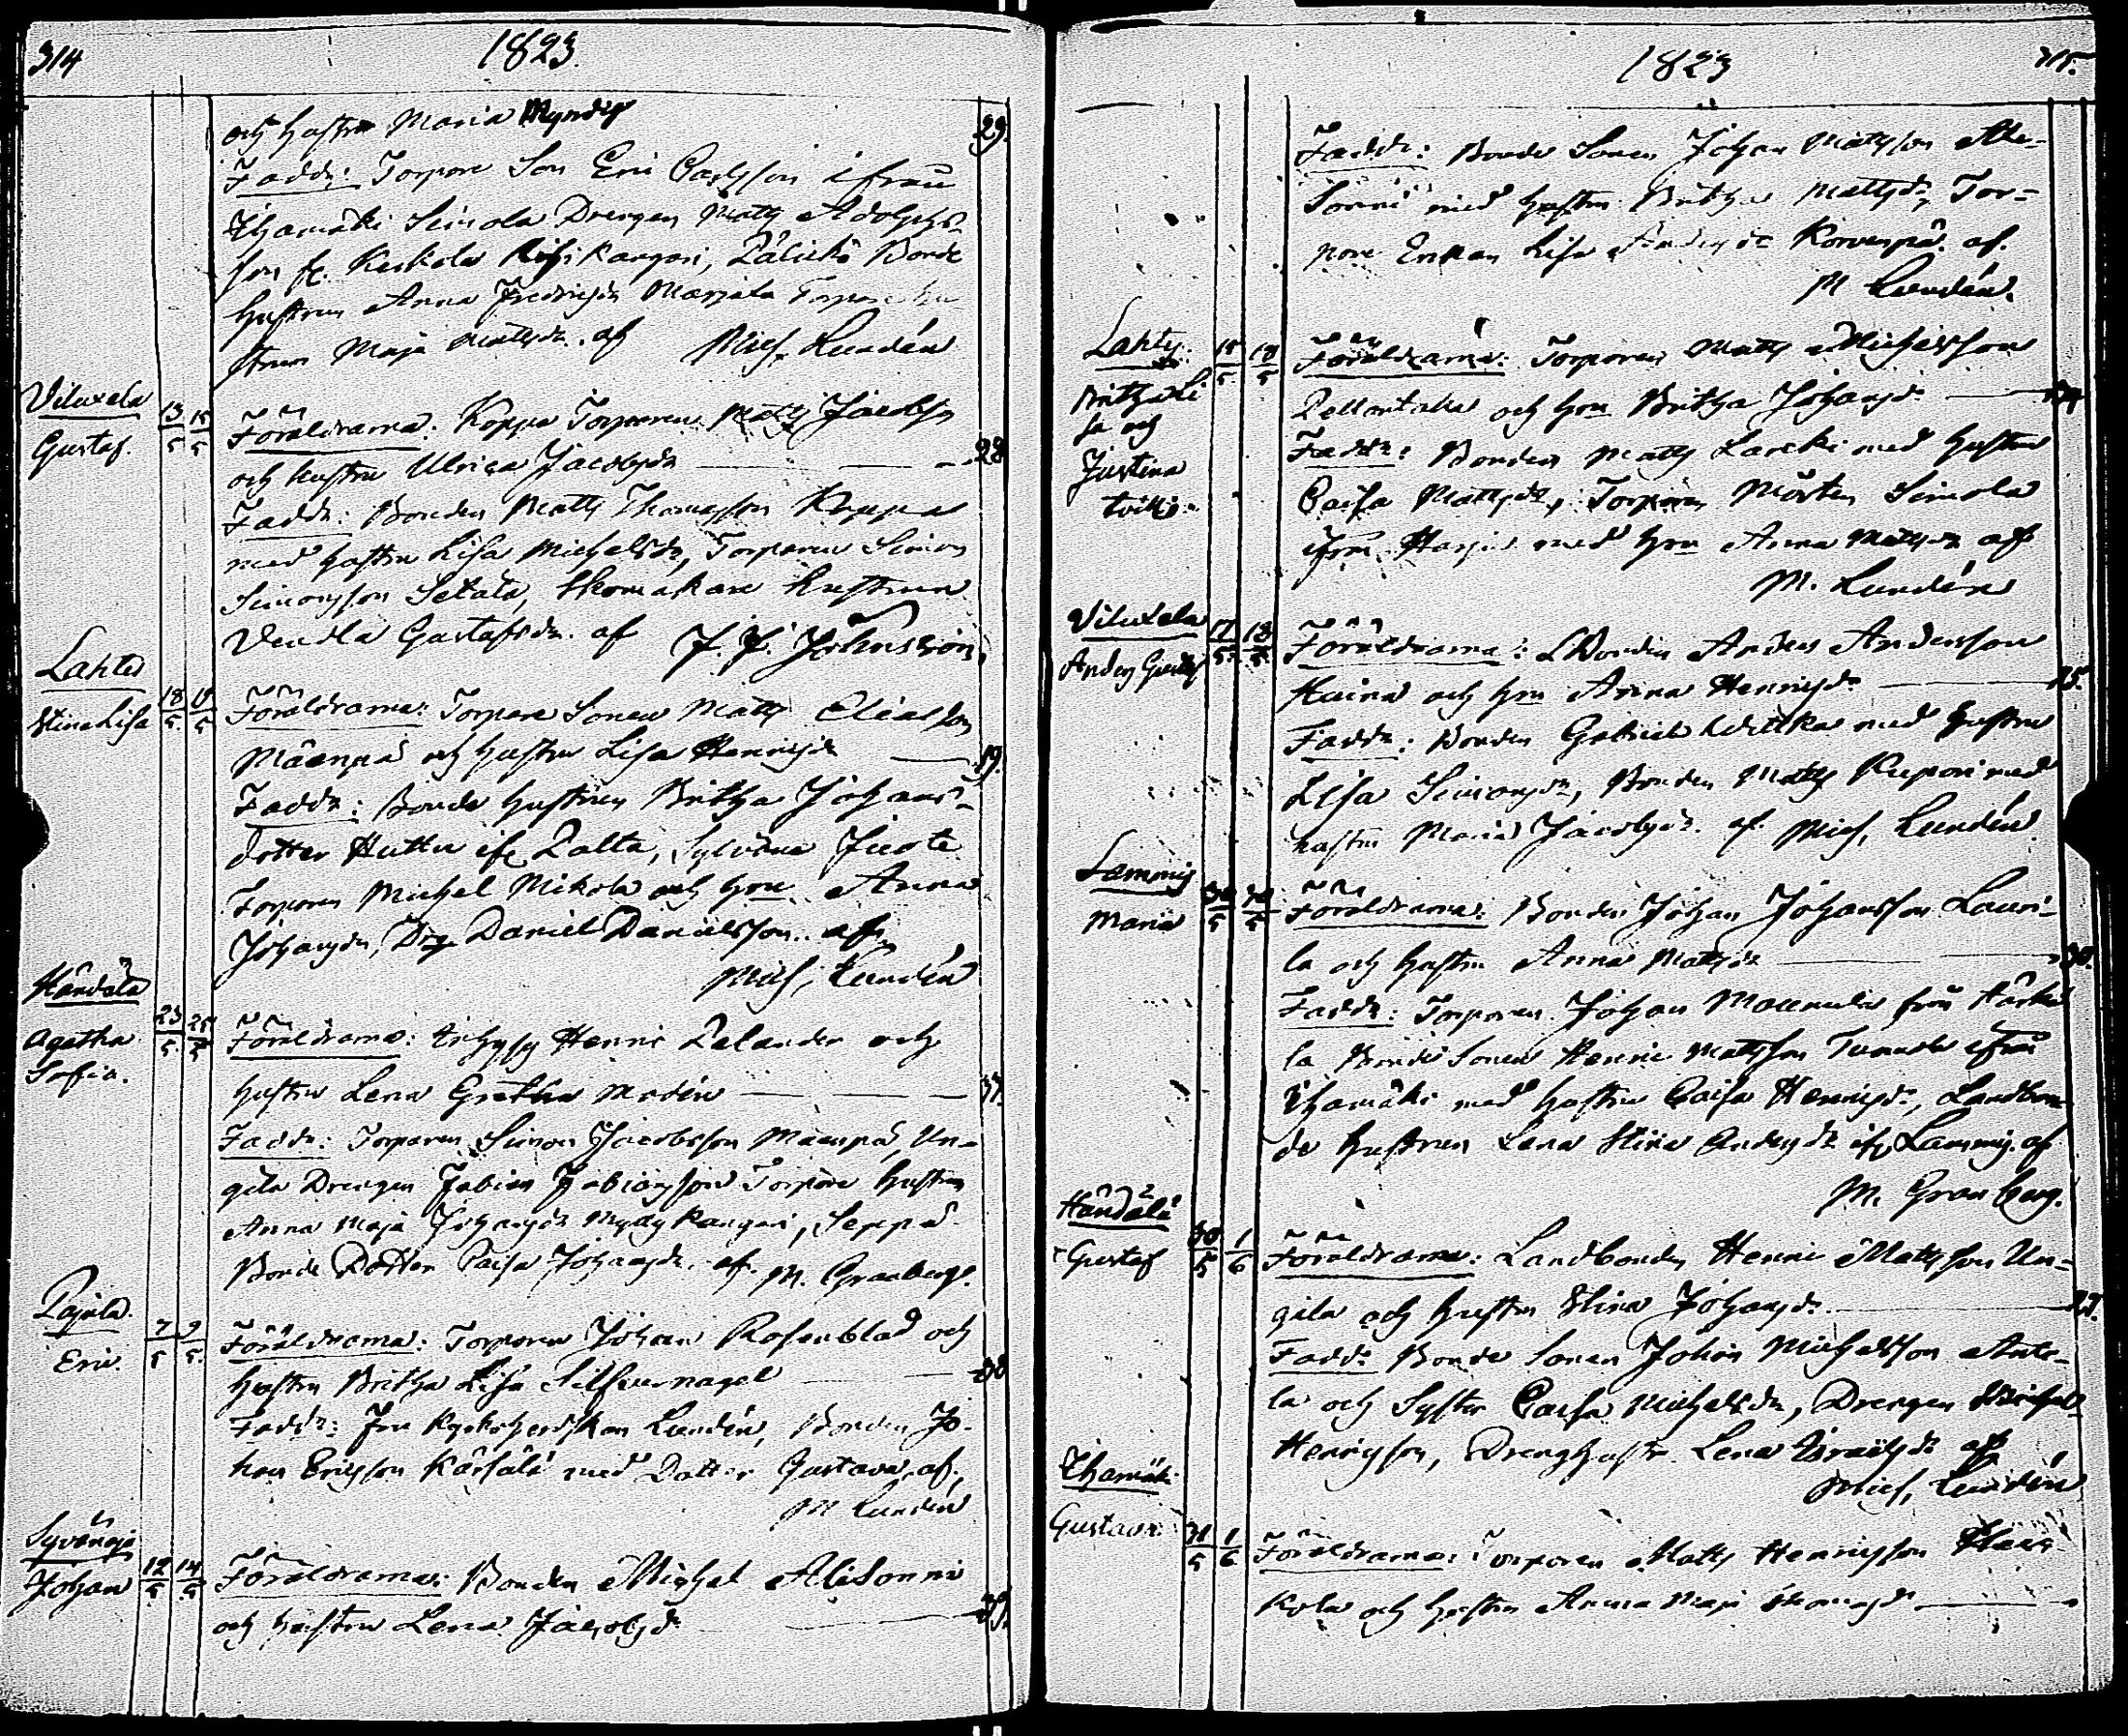 314
1823.
och hustru Maria
29.
Fadd: Torpare Son Eric Carlsson ifrån
Ihamäki Simola Drengen Matts Adolphs-
son fr. Keskola, Bonde
hustrun Anna Marjala Torpare hu-
strun Maja Mattsdr. af Mich. Lundén
Viluxela
Gustaf.
13/5 15/5
Föräldrarna: Koppa Torparen Matts Jacobsson
och hustru Ulrica Jacobsdr
28
Fadd: Bonden Matts Thomasson Koppa
med hustru Lisa Michelsdr, Torparen Simon
Simonsson Setälä, Skomakare hustrun
Vendla Gustafsdr. af
Lahtis
Stina Lisa
18/5 19/5
Föräldrarna: Torpare Sonen Matts Eliasson
Mäenpä och hustru Lisa Henricsdr
19.
Fadd: Bonde hustrun Britha Johans-
dotter Huttu ifr Palta, Sylvänä
Torparen Michel Mikola och hru Anna
Johansdr, Dr. Daniel Danielsson. af
Mich. Lundén
Händälä
Agatha
Sofia.
23/5 25/5
Föräldrarna: Inhyses Henric Pelander och
hustru Lena Gretha Modén
37.
Fadd: Torparen Simon Jacobsson Mäenpä, Un-
gila Drengen Fabian Fabiansson Torpare hustrun
Anna Maja Johansdr, Seppä
Bonde Dotter Caisa Johansdr. af. M. Granberg.
Pajula.
Eric.
7/5 9/5
Föräldrarna: Torparen Johan Rosenblad och
hustru Britha Lisa Silfvernagel
38
Fadd: Fru Kyrkoherdskan Lundén, Bonden Jo-
han Ericsson Kärsälä med Dotter Gustava, af.
M Lundén
Syvänoja
Johan
12/5 14/5
Föräldrarna: Bonden Michel Alisonni
och hustru Lena Jacobsdr
39.
1823
315.
Fadd: Bonde Sonen Johan Mattsson Ali-
Sonni med hustru Britha Mattsdr, Tor-
pare Enkan Lisa Andersdr af.
M Lundén.
Lahtis.
Britha Li
sa och
Justina
15/5 18/5
Föräldrarna: Torparen Matts Michelsson
och hru Britha Johansdr
Fadd: Bonden Matts med hustru
Caisa Mattsdr, Torparen Mårten Simola
ifrån Harju med hru Anna Mattsdr af
M. Lundén
Viluxela
Anders Gustaf
17/5 18/5
Föräldrarna: Bonden Anders Andersson
och hru Anna Henricsdr
Fadd: Bonden Gabriel med hustru
Lisa Simonsdr, Bonden Matts med
hustru Maria Jacobsdr. af Mich. Lundén
Lammis
Maria
Föräldrarna: Bonden Johan Johansson Lauri-
la och hustru Anna Mattsdr
30.
Fadd: Torparen Johan Maunula från Härki-
la Bonde Sonen Henric Mattsson ifrån
Ihamäki med hustru Caisa Henricsdr, Landbon-
de hustrun Lena Stina Andersdr ifr Lammis. af
M. Granberg.
Händälä
Gustaf
30/5 1/6
Föräldrarna: Landbonden Henric Mattsson Un-
gila och hustru Stina Johansdr.
Fadd: Bonde Sonen Johan Michelsson Ante-
la och Syster Caisa Michelsdr, Drengen Michel
Henricsson, Drenghustr Lena Israelsdr af
Mich. Lundén
Ihamäki
Gustava
31/5 1/6
Föräldrarna: Torparen Matts Henricsson
kola och hustru Anna Maja Thomasdr